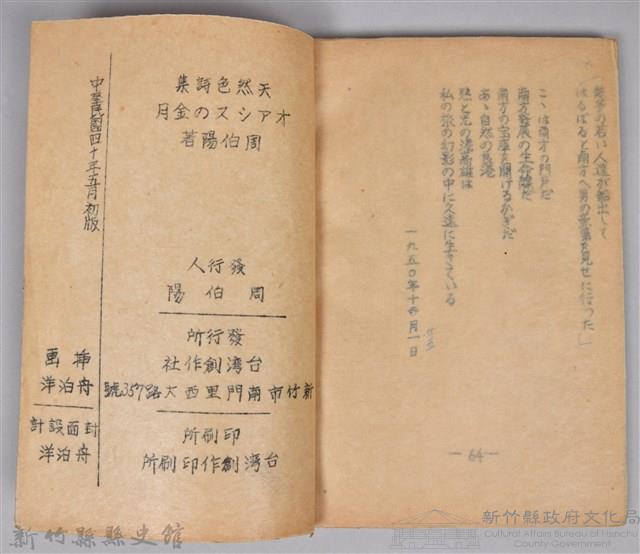 の若い人達が船出して
はるばると南方へ男の意氣を見せに行つた」
こゝは南方の門戸だ
南方發展の生命線だ
南方の宝庫を開けるかぎだ
あゝ自然の良港
熱と光の港高雄は
私の旅の幻影の中に久遠に生きている
一九五〇年十 月一日
— 64 —
天然色詩集
オアシスの金月
周伯陽著
發行人
周伯陽
發行所
台湾創作社
新竹市南門里西大路357號
印刷所
台湾創作印刷所
中華民國四十年五月初版
挿画
舟泊洋
封面設計
舟泊洋
新竹縣縣史館
新竹縣政府文化局
Cultural Affairs Bureau of Hsinchu
County Government